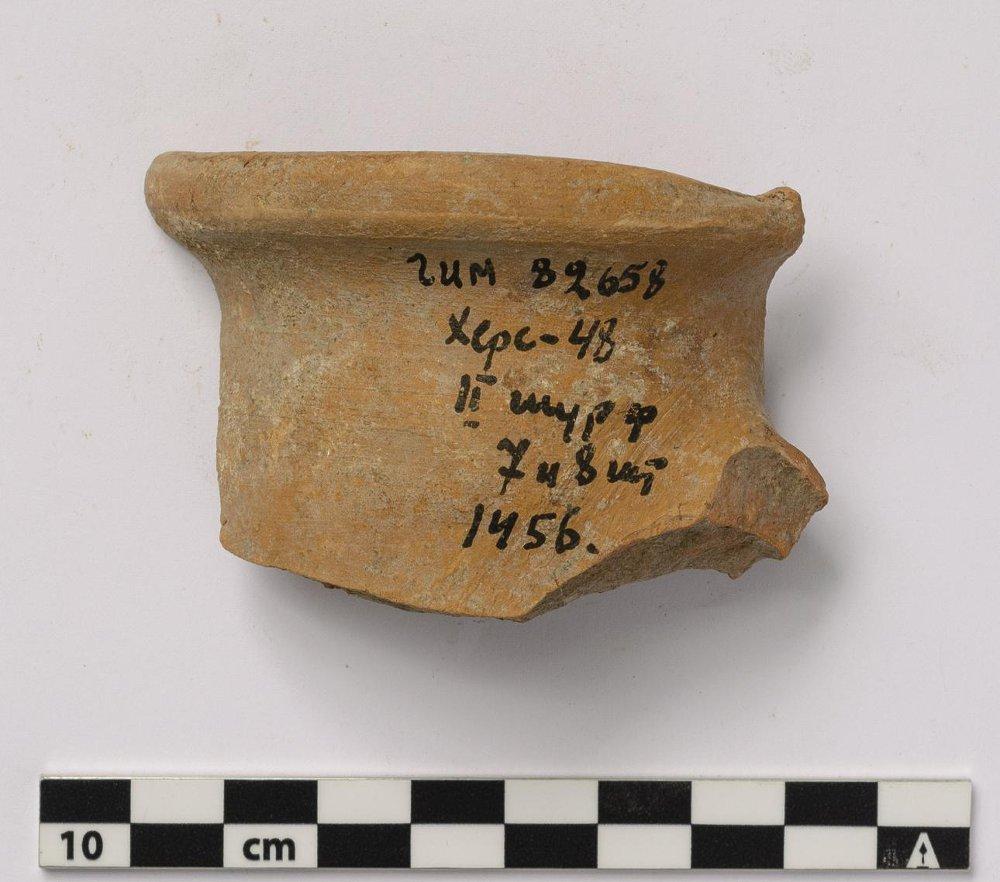 гим 82658
Херс-48
II шурф
7 и 8 шт
1456.
10 cm